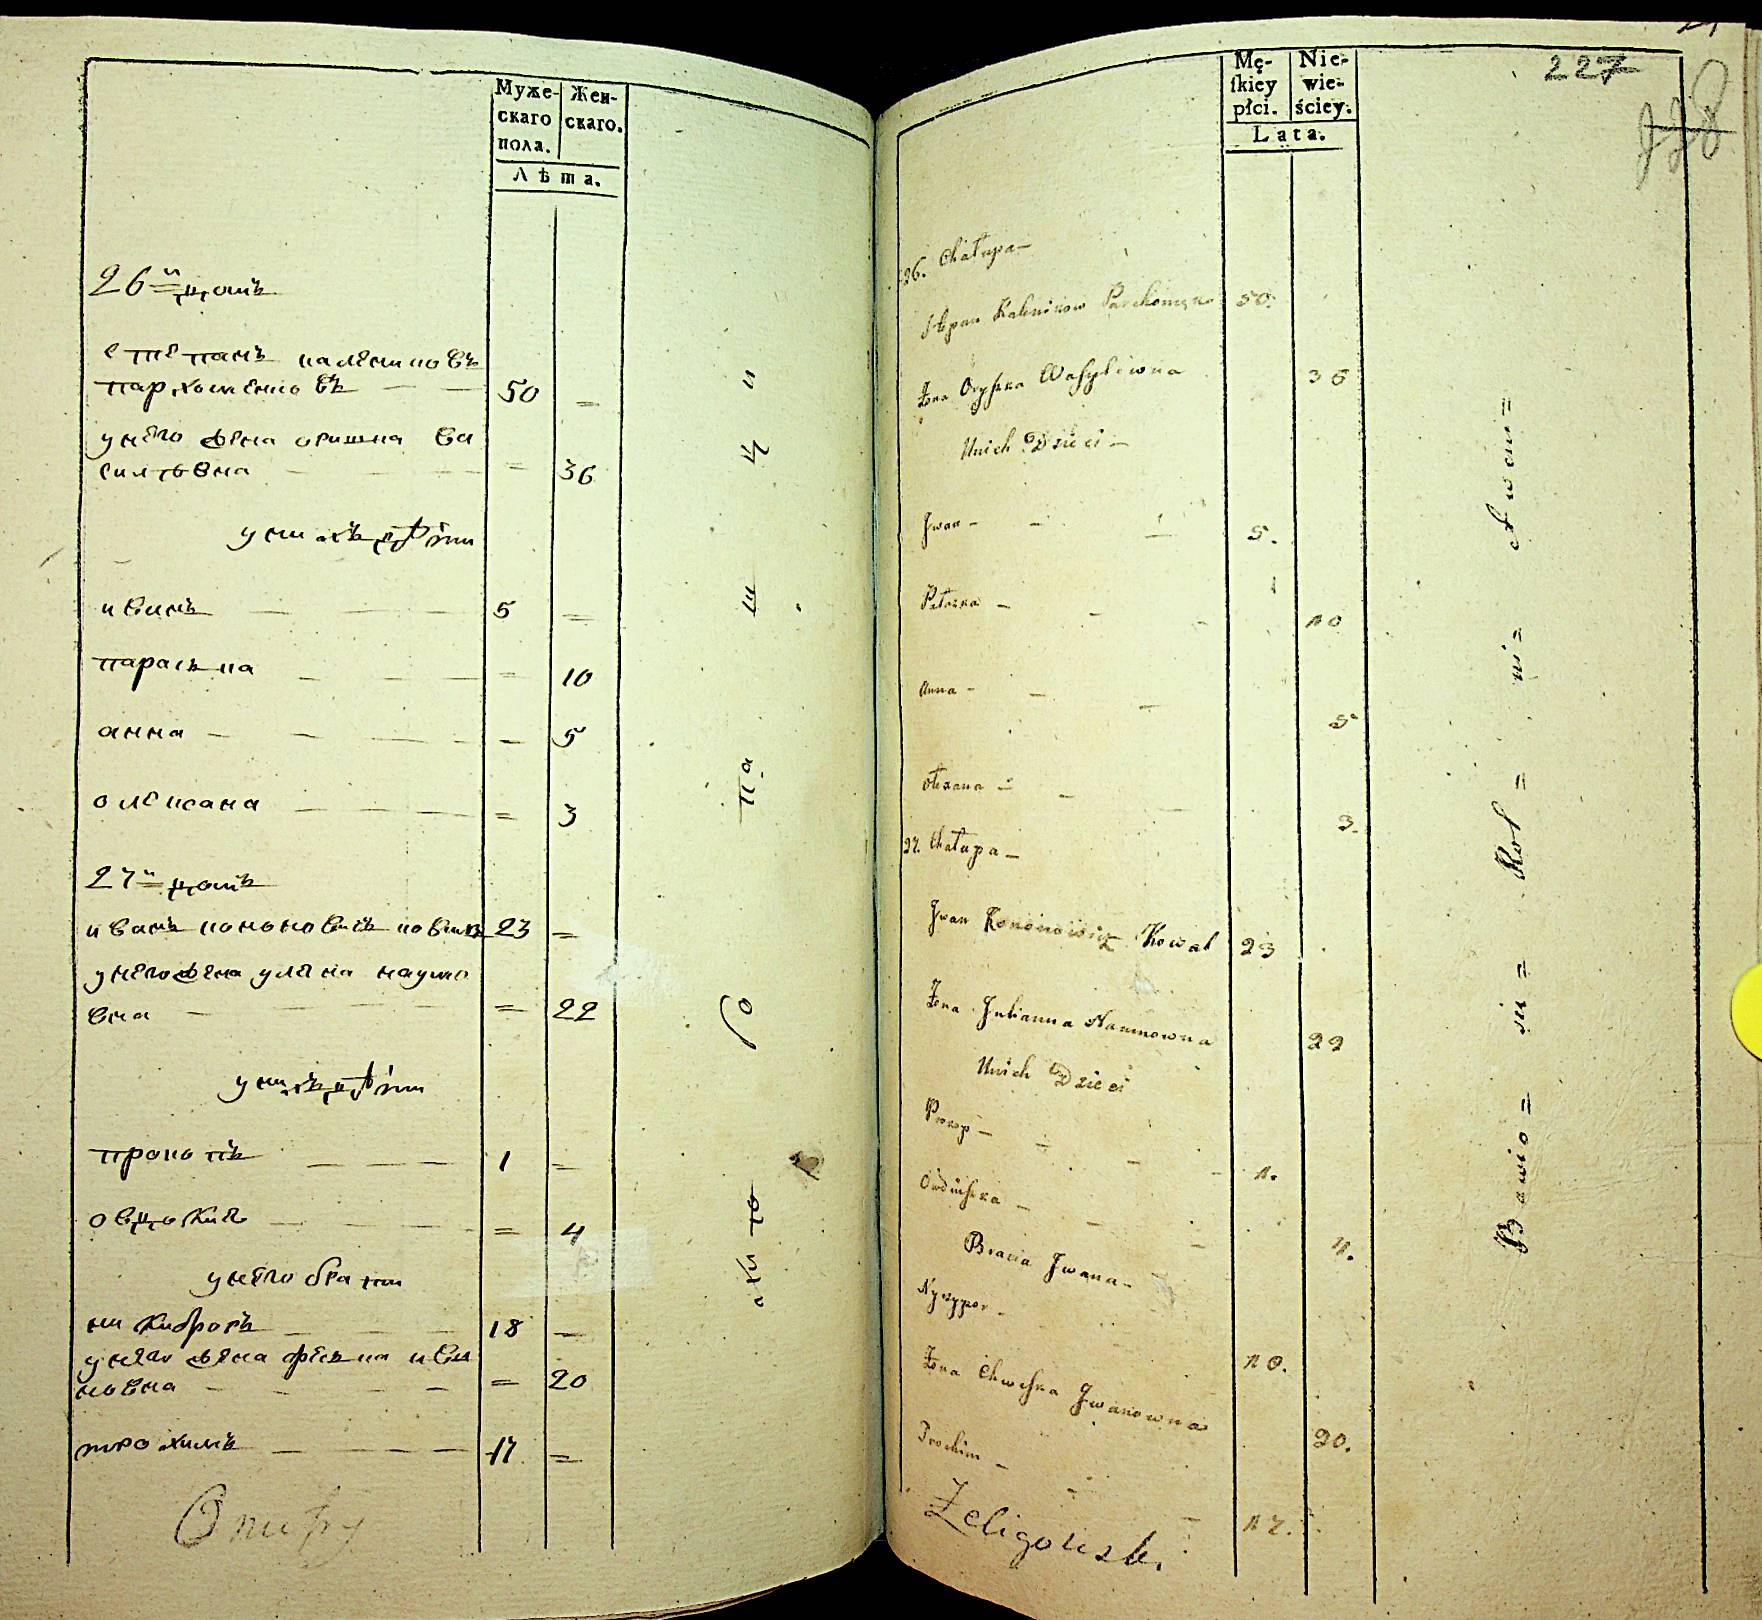 Муже-
скаго
пола.
Жен-
скаго.
Лѣта.
26й домъ
степанъ калениковъ
пархоменковъ 50
унего жена оришка ва
силювна 36
унихъ дѣти
иванъ 5
параска 10
анна 5
олександра 3
27й домъ
иванъ кононовичъ коваль 23
унего жена уляна наумо
вна 22
унихъ дѣти
прокопъ 1
овдокия 4
унего брати
никифоръ 18
унего жена феська ива
новна 20
трохимъ 17
227
Mę-
skiey
płci.
Nie-
wie-
ściey.
Lata.
26. Chałupa
Stepan Kalenikow Parchomęko 50.
Żona Oryszka Wasyliwna 36
Unich Dzieci
Jwan 5.
Paraska 10
Anna 5
Olexana 3.
27. Chałupa
Jwan Kononowicz Kowal 23
Żona Julianna Naumowna 22
Unich Dzieci
Prokop 1.
Owduszka 4.
Bracia Jwana
Nykypor 18.
Żona Chweska Jwanowna 20.
Trochim 17.
Żeligowski